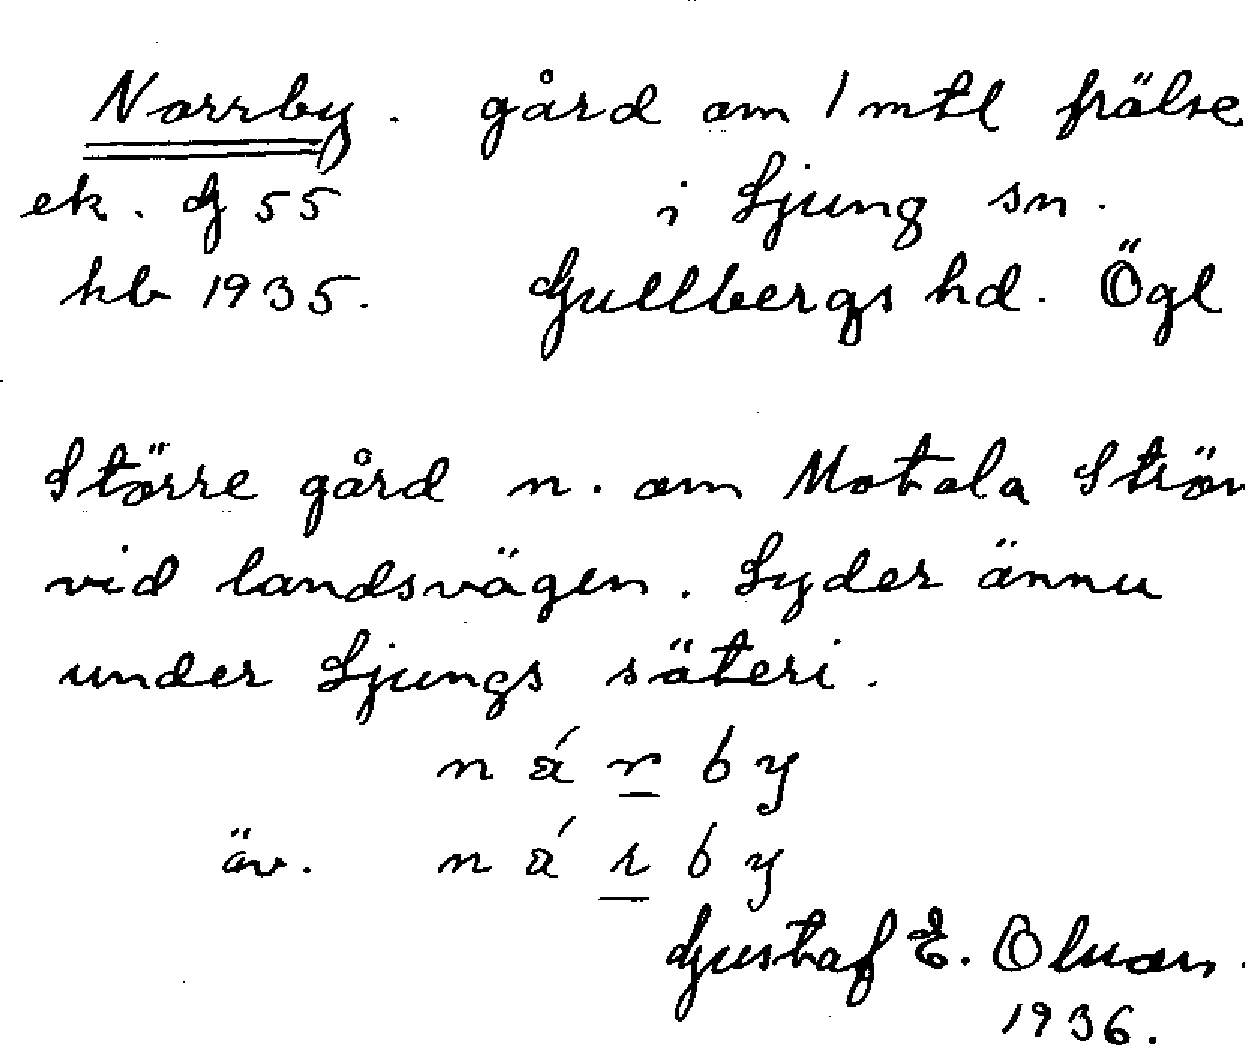 Norrby. gård om 1 mtl frälse
ek. G 55 i Ljung sn.
hb 1935. Gullbergs hd. Ögl
Större gård n. om Motala Ström
vid landsvägen. Lyder ännu
under Ljungs säteri.
n á r b y
äv. n á r b y
Gustaf E. Olson.
1936.